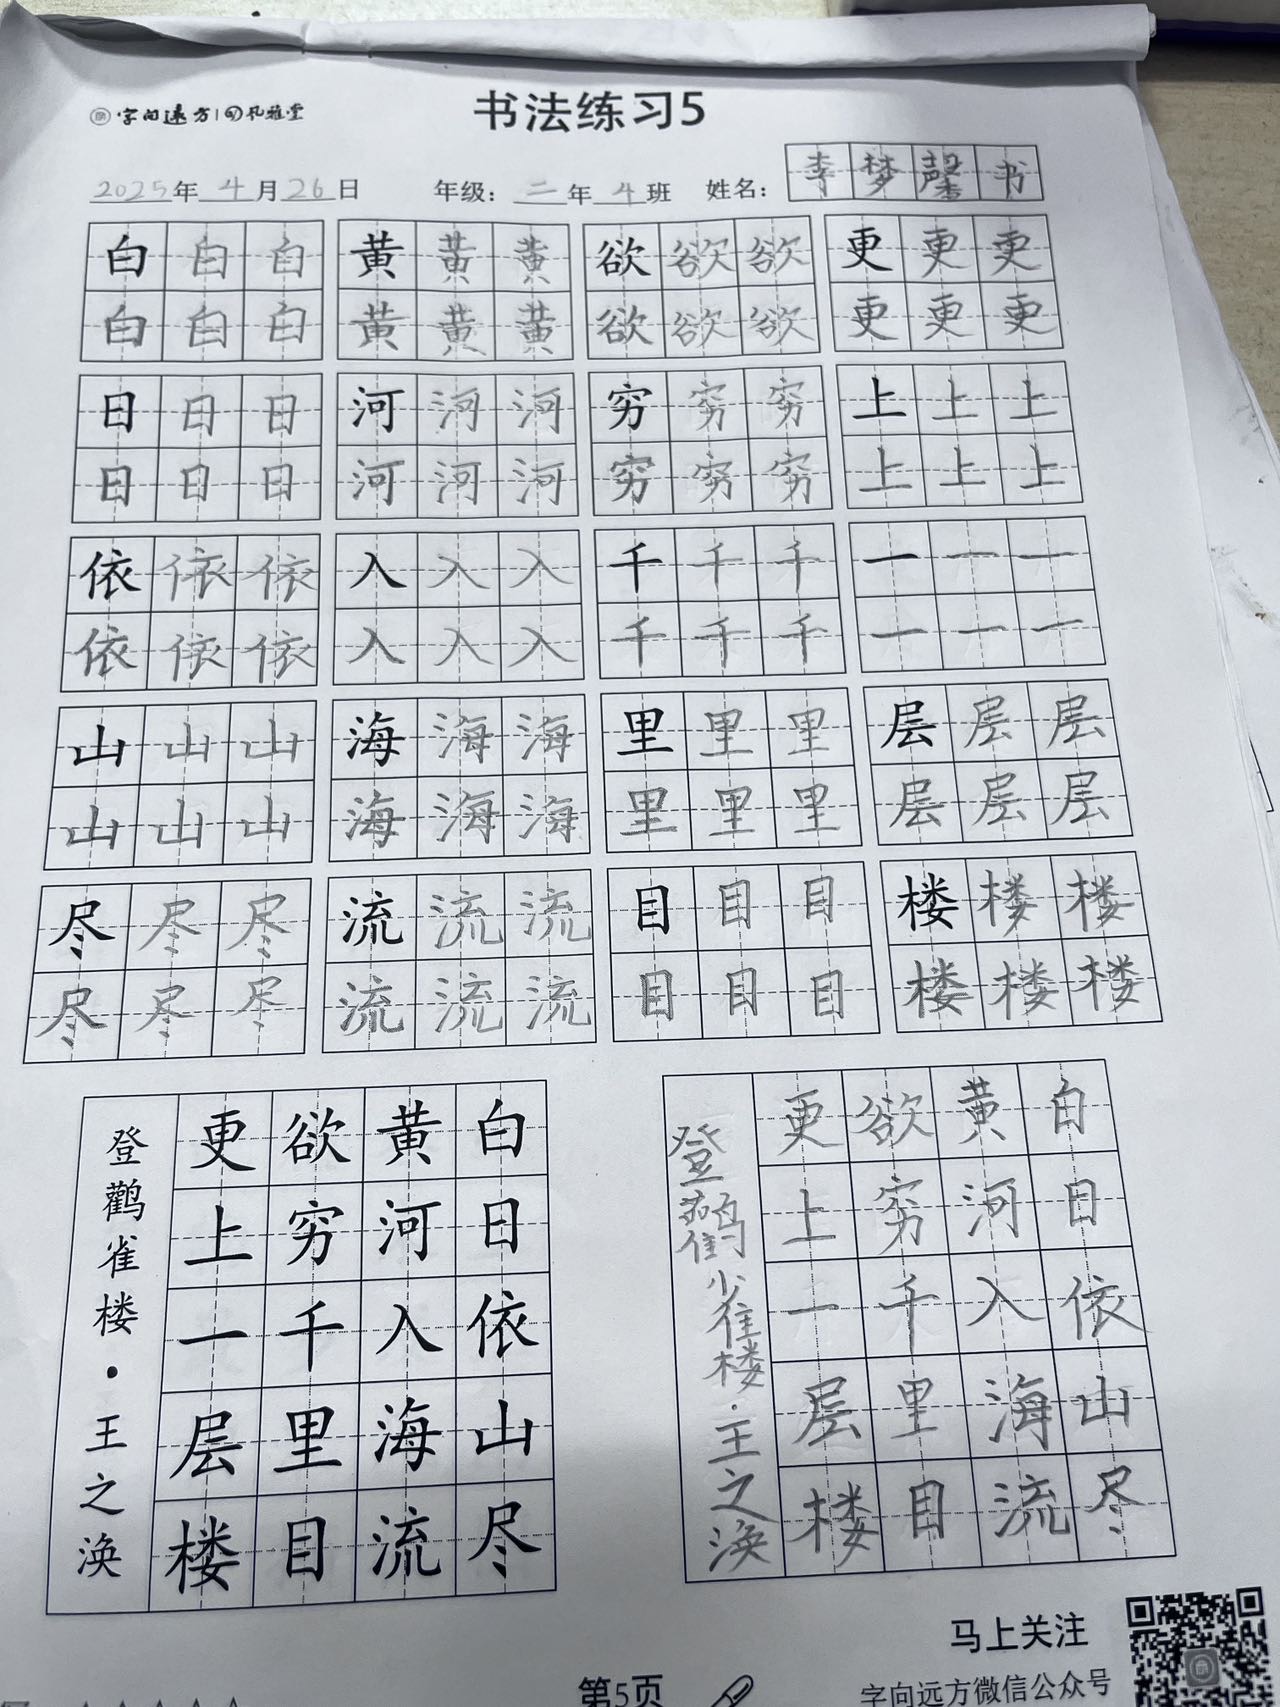 字向远方 凡雅堂
书法练习5
2025年4月26日 年级：二年4班 姓名：李梦馨书
白白白 黄黄黄 欲欲欲 更更更
白白白 黄黄黄 欲欲欲 更更更
日日日 河河河 穷穷穷 上上上
日日日 河河河 穷穷穷 上上上
依依依 入入入 千千千 一一一
依依依 入入入 千千千 一一一
山山山 海海海 里里里 层层层
山山山 海海海 里里里 层层层
尽尽尽 流流流 目目目 楼楼楼
尽尽尽 流流流 目目目 楼楼楼
白日依山尽
黄河入海流
欲穷千里目
更上一层楼
登鹳雀楼·王之涣
白日依山尽
黄河入海流
欲穷千里目
更上一层楼
登鹳雀楼·王之涣
马上关注
字向远方微信公众号
第5页